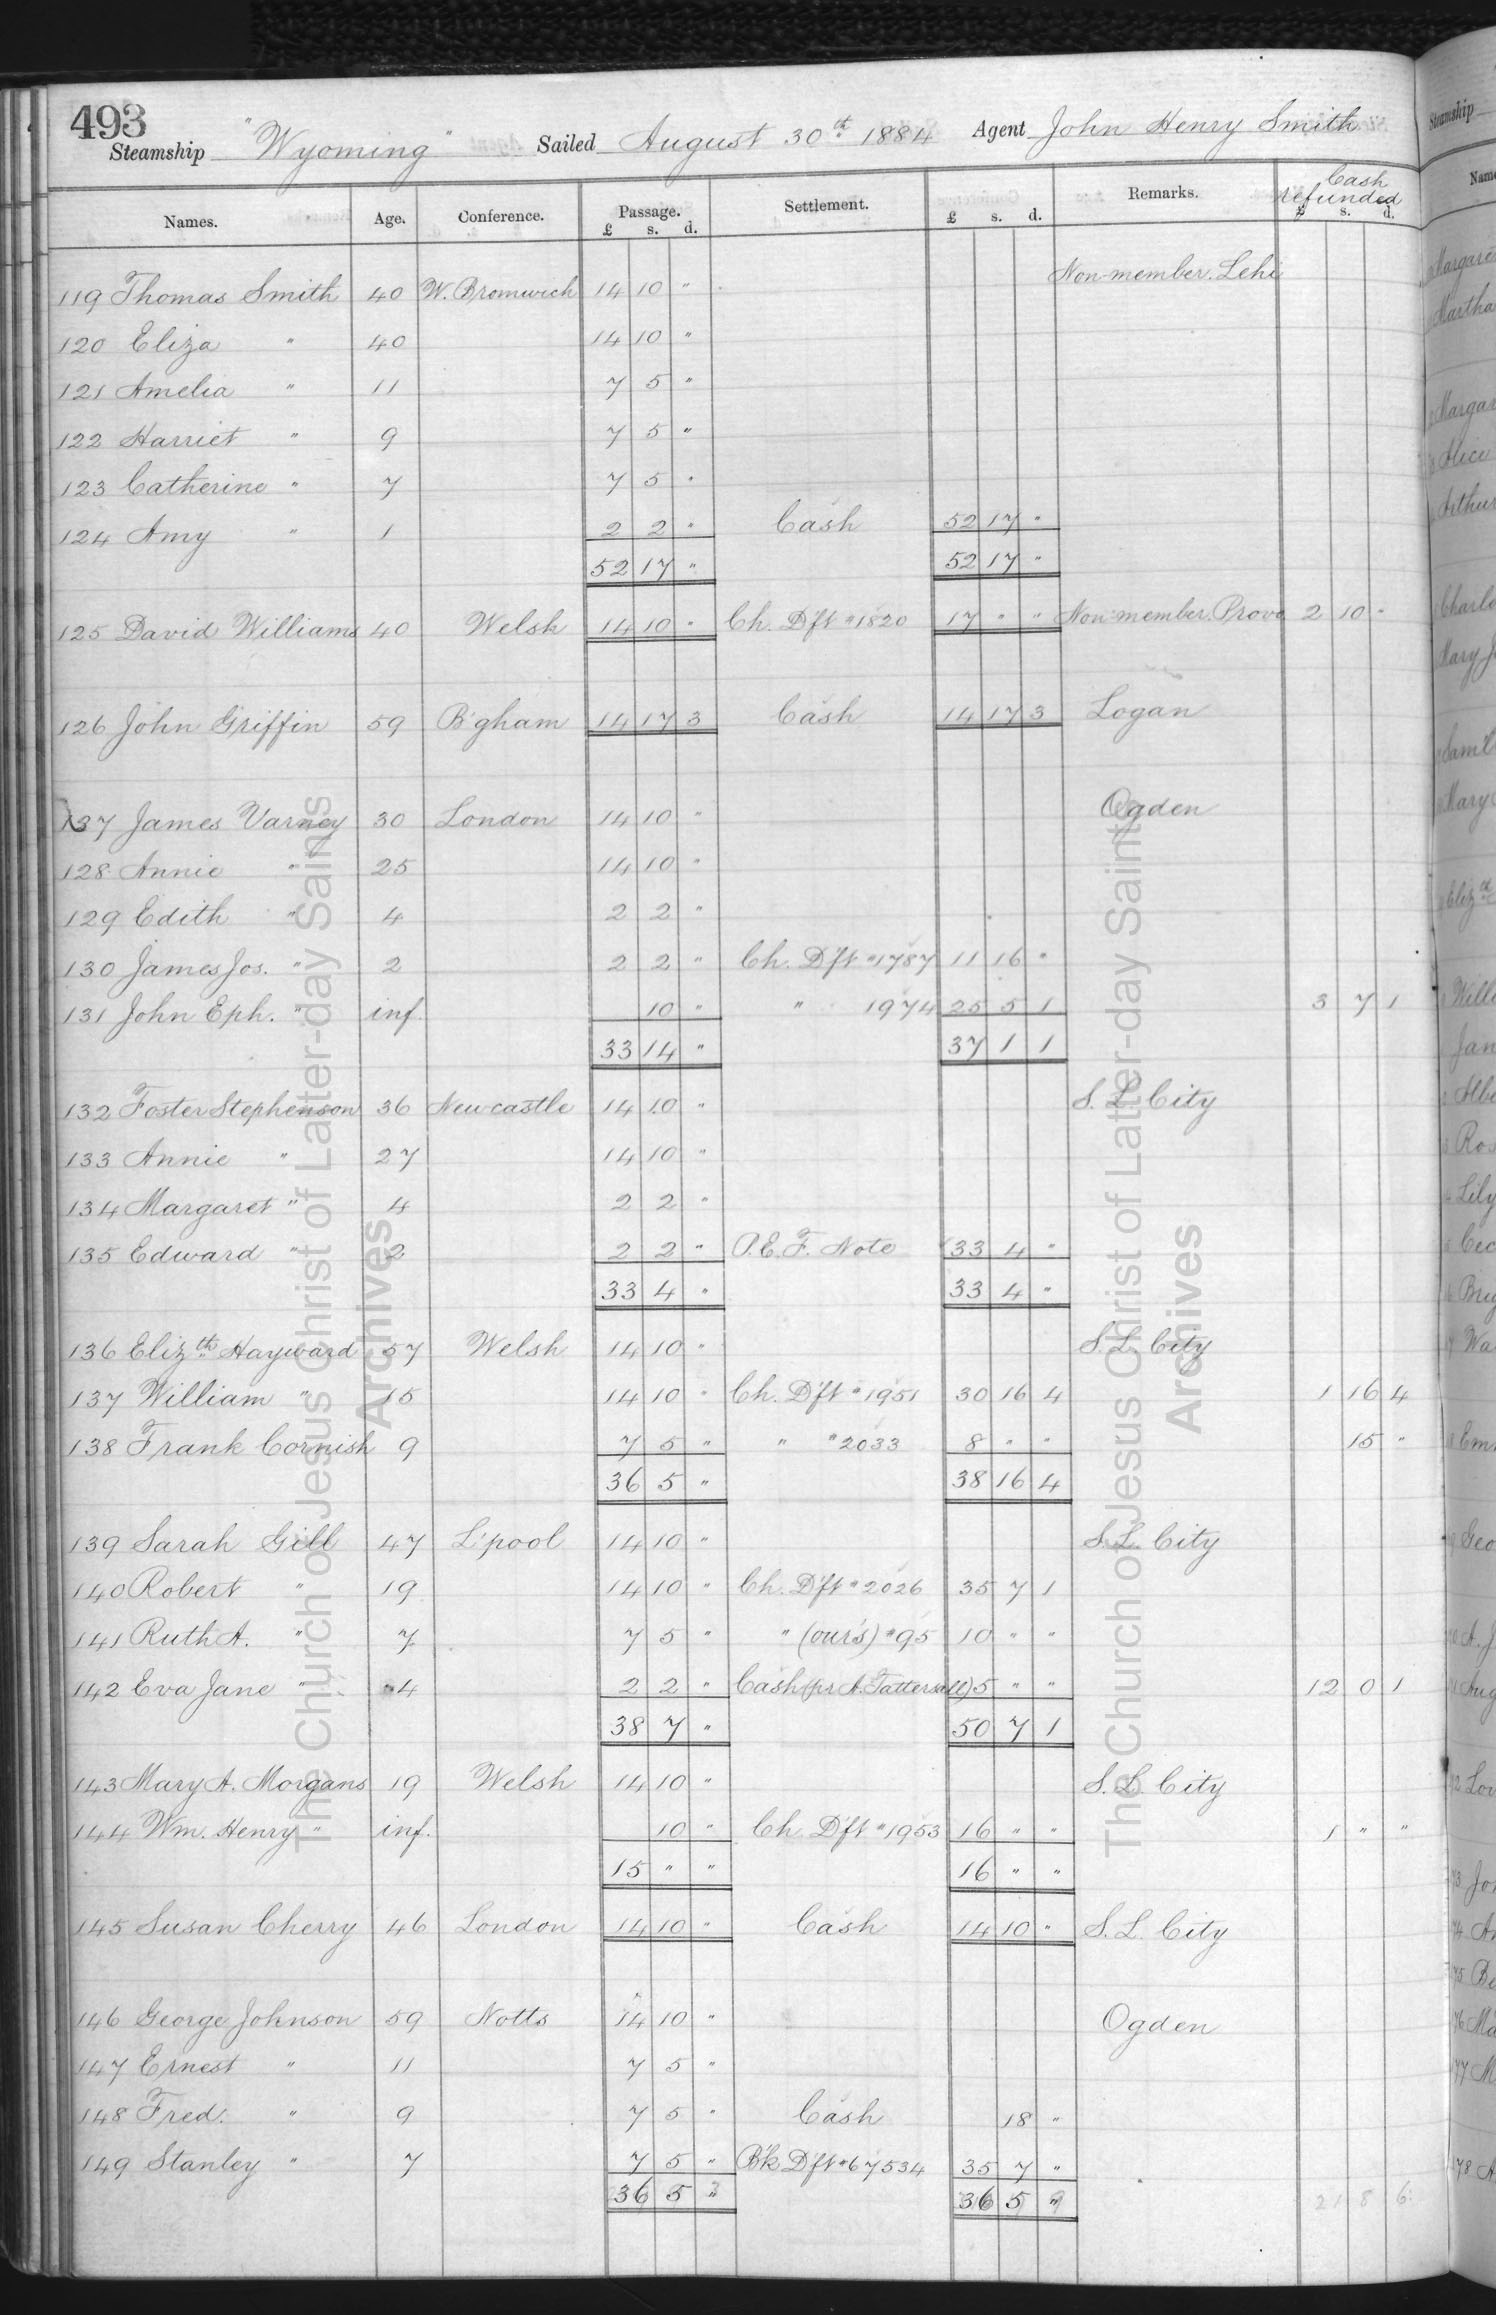 493
Steamship "Wyoming" Sailed August 30th 1884 Agent John Henry Smith
Names. Age. Conference. Passage. £ s. d. Settlement. £ s. d. Remarks. Cash refunded £ s. d.
119 Thomas Smith 40 W. Bromwich 14 10 " Non-member. Lehi
120 Eliza " 40 14 10 "
121 Amelia " 11 7 5 "
122 Harriet " 9 7 5 "
123 Catherine " 7 7 5 "
124 Amy " 1 2 2 " Cash 52 17 "
52 17 " 52 17 "
125 David Williams 40 Welsh 14 10 " Ch. Dft #1820 17 " " Non-member. Provo 2 10 "
126 John Griffin 59 B'gham 14 17 3 Cash 14 17 3 Logan
137 James Varney 30 London 14 10 " Ogden
128 Annie " 25 14 10 "
129 Edith " 4 2 2 "
130 James Jos. " 2 2 2 " Ch. Dft #1787 11 16 "
131 John Eph. " inf. 10 " " 1974 25 5 1 3 7 1
33 14 " 37 1 1
132 Foster Stephenson 36 Newcastle 14 10 " S. L. City
133 Annie " 27 14 10 "
134 Margaret " 4 2 2 "
135 Edward " 2 2 2 " P.E.F. Note 33 4 "
33 4 " 33 4 "
136 Elizth Hayward 57 Welsh 14 10 " S. L. City
137 William " 15 14 10 " Ch. Dft #1951 30 16 4 1 16 4
138 Frank Cornish 9 7 5 " " #2033 8 " " 15 "
36 5 " 38 16 4
139 Sarah Gill 47 L'pool 14 10 " S. L. City
140 Robert " 19 14 10 " Ch. Dft #2026 35 7 1
141 Ruth A. " 7 7 5 " " (our's) #95 10 " "
142 Eva Jane " 4 2 2 " Cash (pr A. Tattersall) 5 " " 12 0 1
38 7 " 50 7 1
143 Mary A. Morgans 19 Welsh 14 10 " S. L. City
144 Wm. Henry " inf. 10 " Ch. Dft #1953 16 " " 1 " "
15 " " 16 " "
145 Susan Cherry 46 London 14 10 " Cash 14 10 " S. L. City
146 George Johnson 59 Notts 14 10 " Ogden
147 Ernest " 11 7 5 "
148 Fred. " 9 7 5 " Cash 18 "
149 Stanley " 7 7 5 " B'k Dft #67534 35 7 "
36 5 " 36 5 "
21 8 6
The Church of Jesus Christ of Latter-day Saints
Archives
The Church of Jesus Christ of Latter-day Saints
Archives